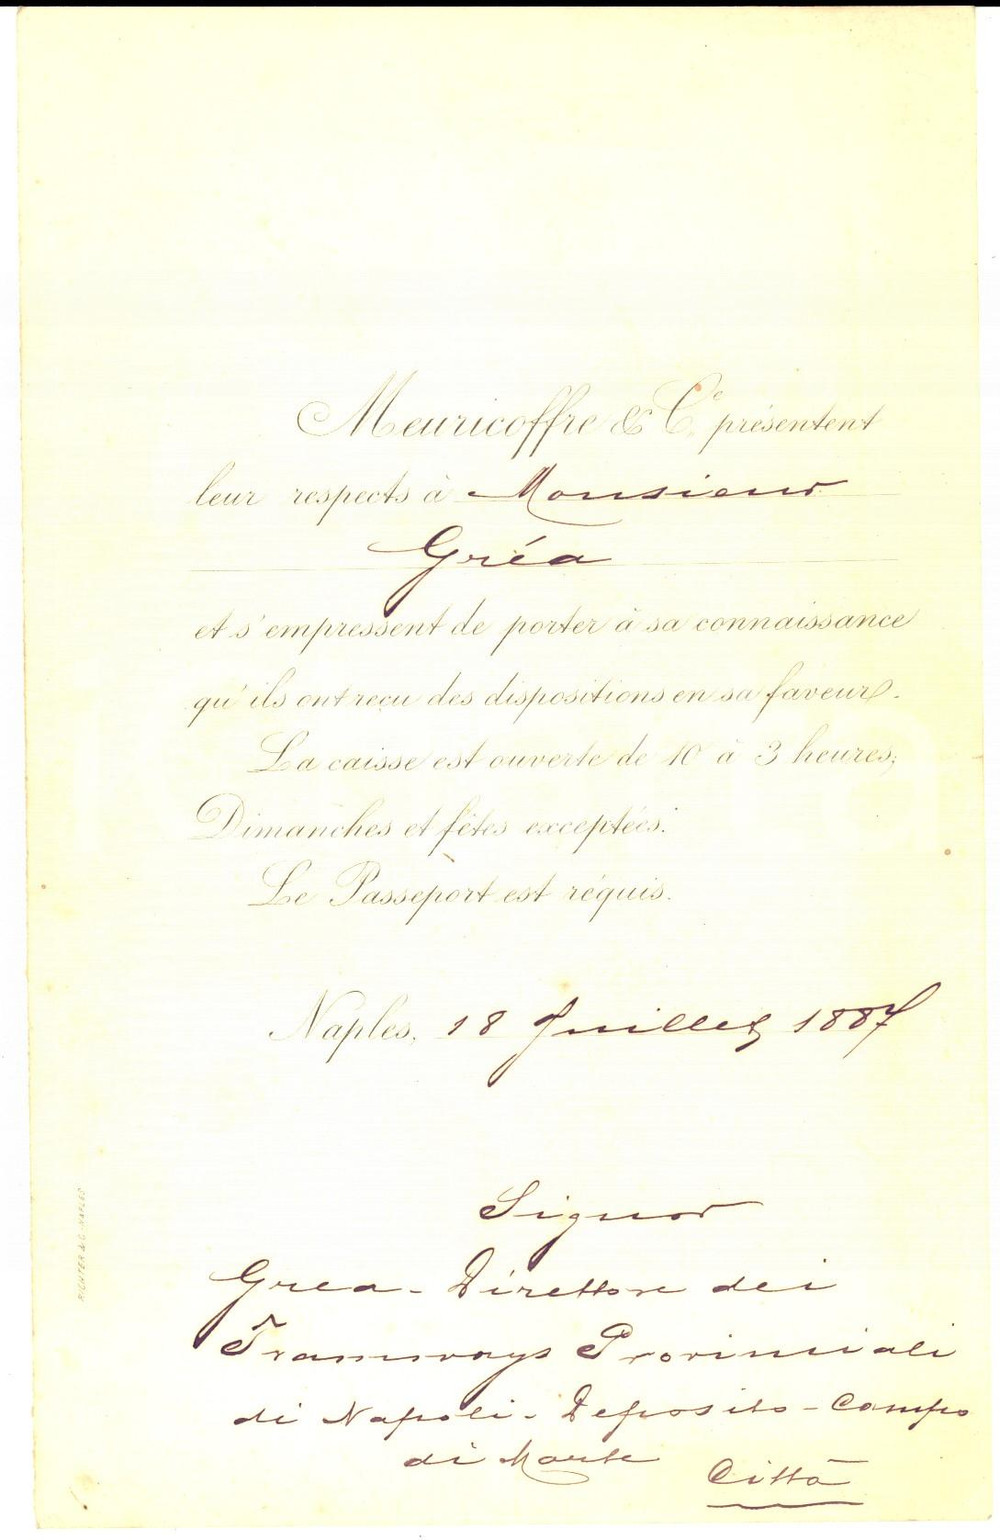 Meuricoffre & Cᵉ présentent
leur respects à Monsieur
Gréa
et s'empressent de porter à sa connaissance
qu'ils ont reçu des dispositions en sa faveur.
La caisse est ouverte de 10 à 3 heures;
Dimanches et fêtes exceptées.
Le Passeport est réquis.
Naples, 18 Juillet 1887
Signor
Grea - Direttore dei
Tramways Provinciali
di Napoli - Deposito - Campo
di Marte
Città
RICHTER & C. NAPLES